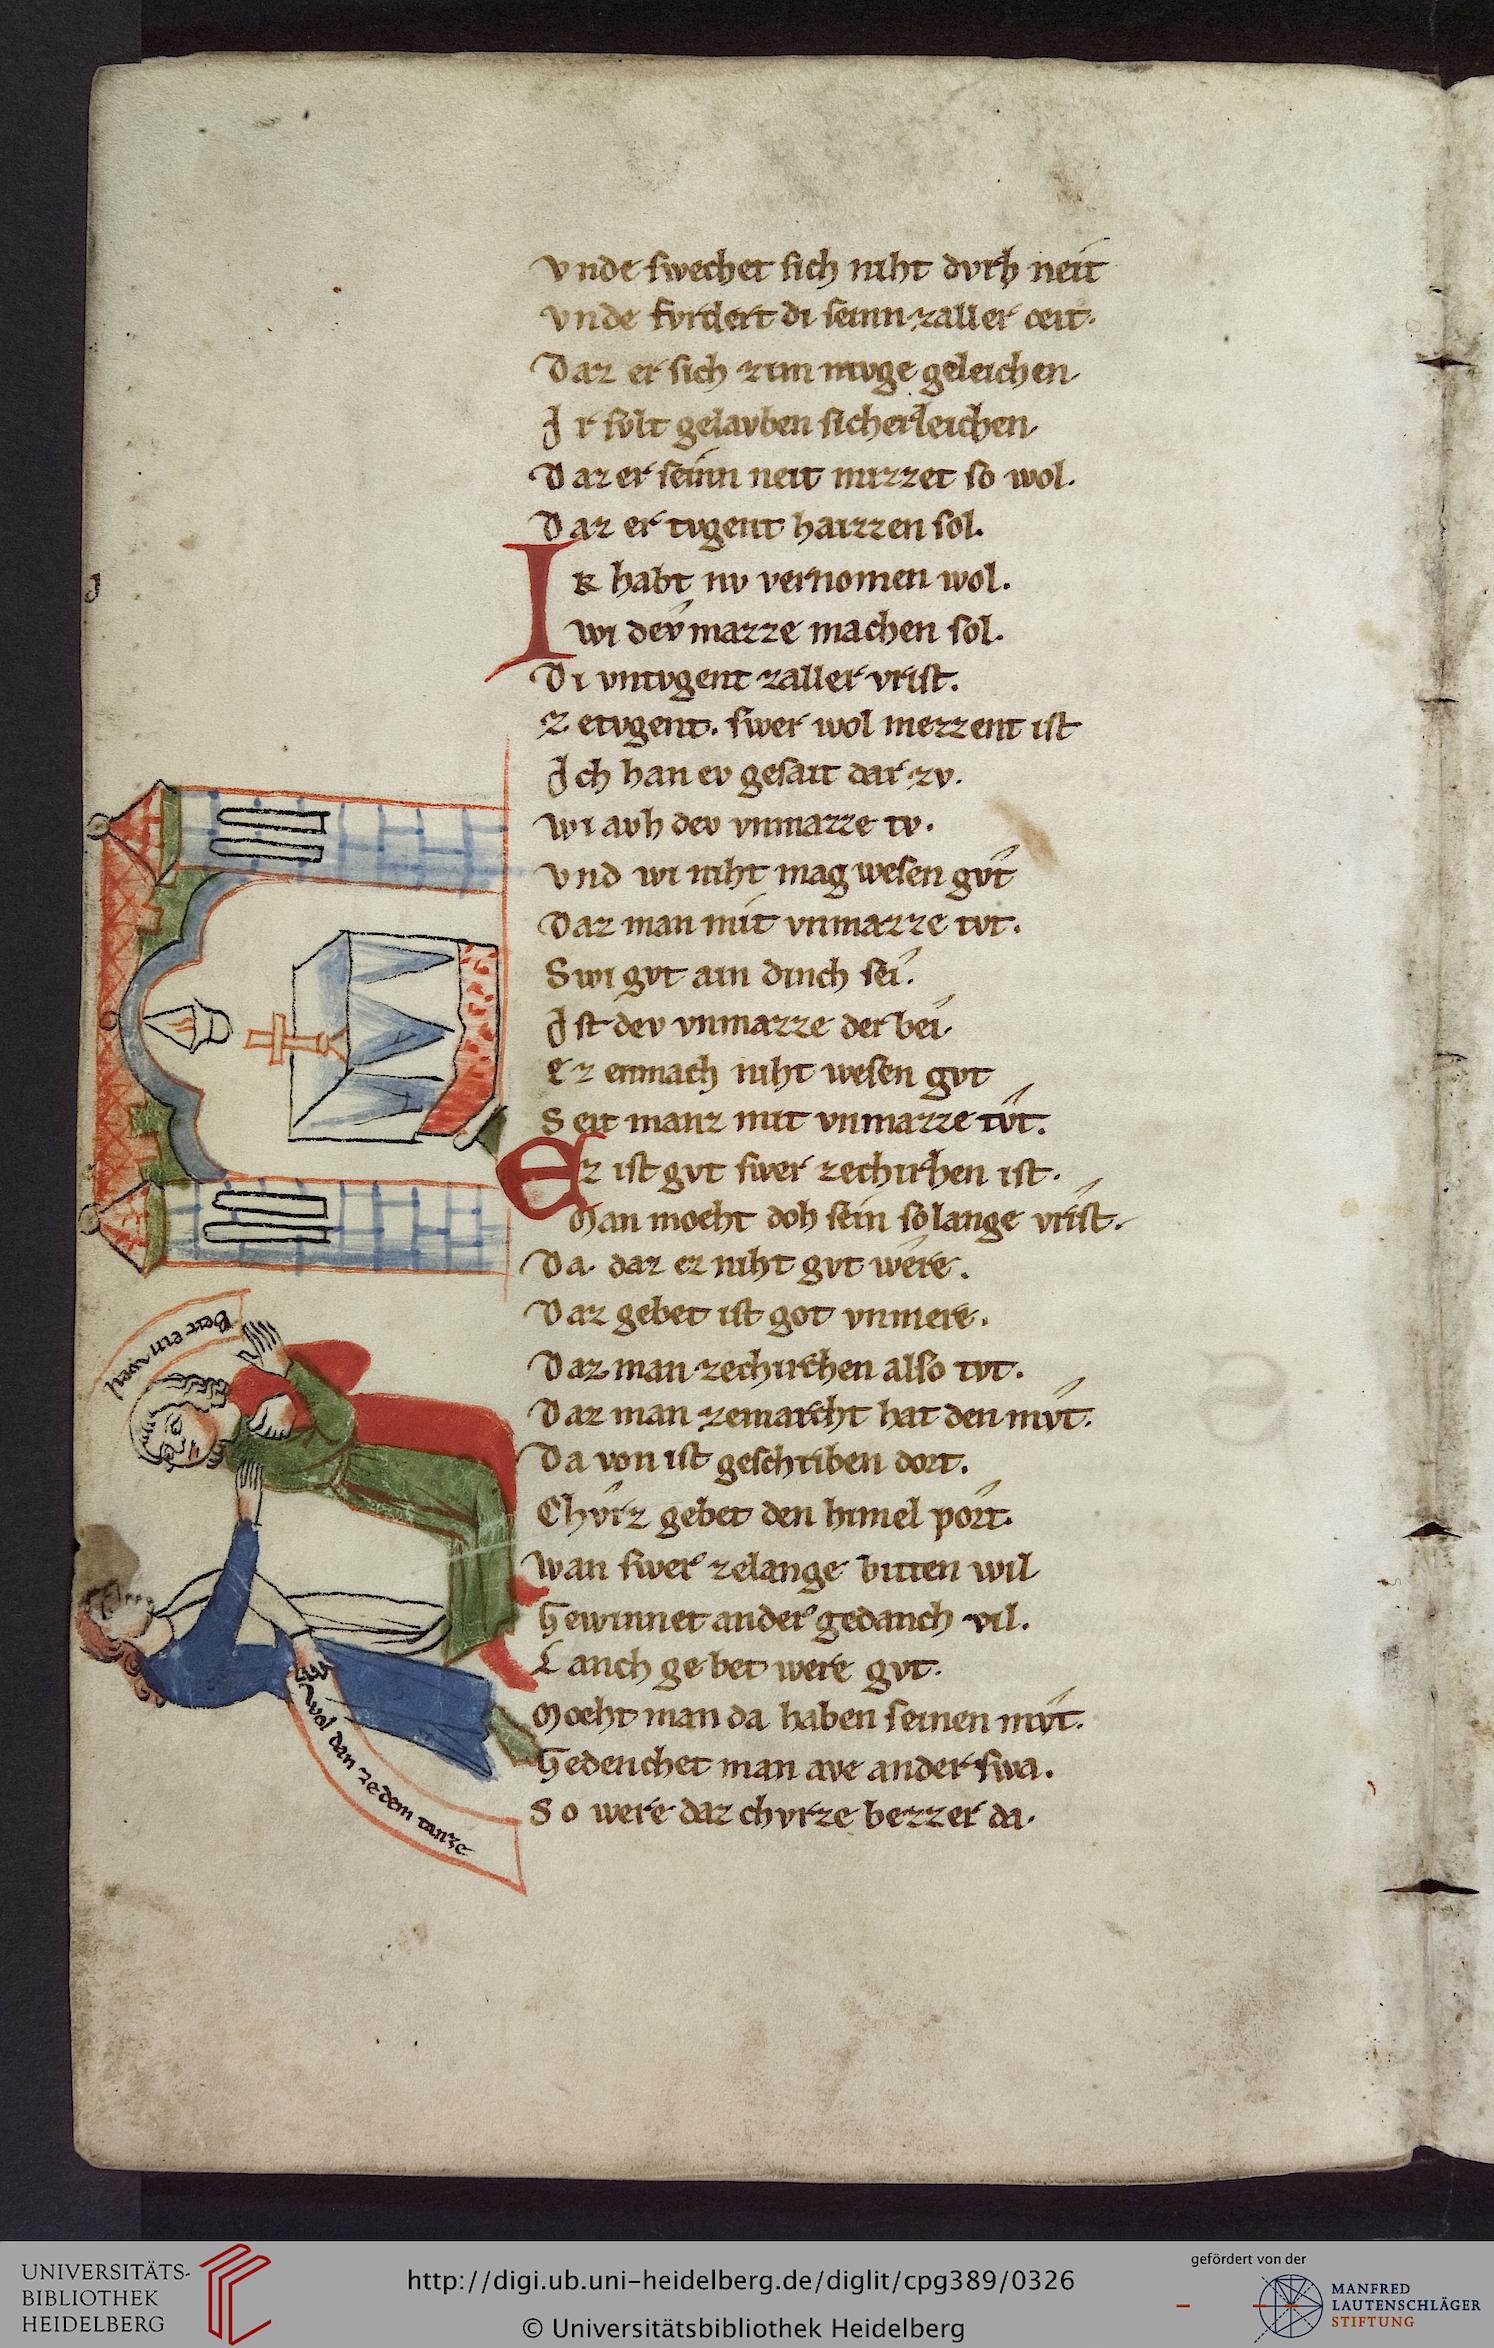 Vnde swechet sich niht dvrh neit
Vnde fvrdert di seinn zaller ceit.
Daz er sich zim mvge geleichen.
Ir svlt gelavben sicherleichen.
Daz er seinn neit nizzet so wol.
Daz er tvgent haizzen sol.
IR habt nv vernomen wol.
wi dev mazze machen sol.
Di vntvgent zaller vrist.
Zetvgent. swer wol mezzent ist
Ich han ev gesait dar zv.
Wi avh dev vnmazze tv.
Vnd wi niht mag wesen gvt
Daz man mit vnmazze tvt.
Swi gvt ain dinch sei.
Ist dev vnmazze der bei.
Ez enmach niht wesen gvt
Seit manz mit vnmazze tvt.
Ez ist gvt swer zechirhen ist.
Man moeht doh sein so lange vrist.
Da. daz ez niht gvt were.
Daz gebet ist got vnmere.
Daz man zechirchen also tvt.
Daz man zemarcht hat den mvt.
Da von ist geschriben dort.
Chvrz gebet den himel port.
Wan swer zelange bitten wil
Gewinnet ander gedanch vil.
Lanch gebet were gvt.
Moeht man da haben seinen mvt.
Gedenchet man ave anderswa.
So were daz chvrze bezzer da.
I
Beit ein weil
wol dan ze dem tanze
UNIVERSITÄTS-
BIBLIOTHEK
HEIDELBERG
http://digi.ub.uni-heidelberg.de/diglit/cpg389/0326
© Universitätsbibliothek Heidelberg
gefördert von der
MANFRED
LAUTENSCHLÄGER
STIFTUNG